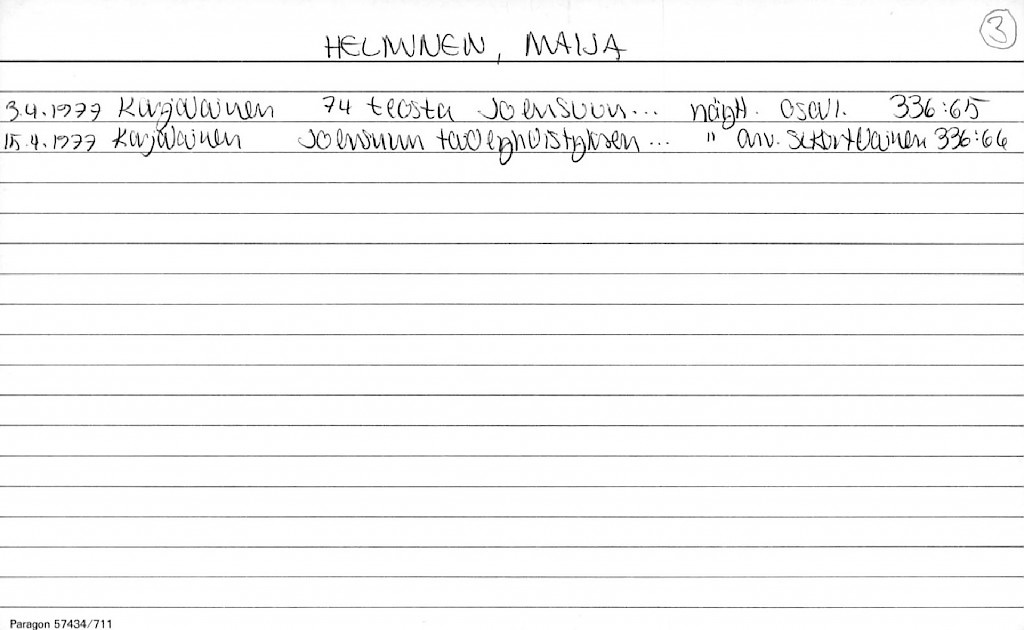 3
HELMINEN, MAIJA
3.4.1977 Karjalainen 74 teosta Joensuun... näytt. osall. 336:65
15.4.1977 Karjalainen Joensuun taideyhdistyksen ... " arv. 336:66
Paragon 57434/711